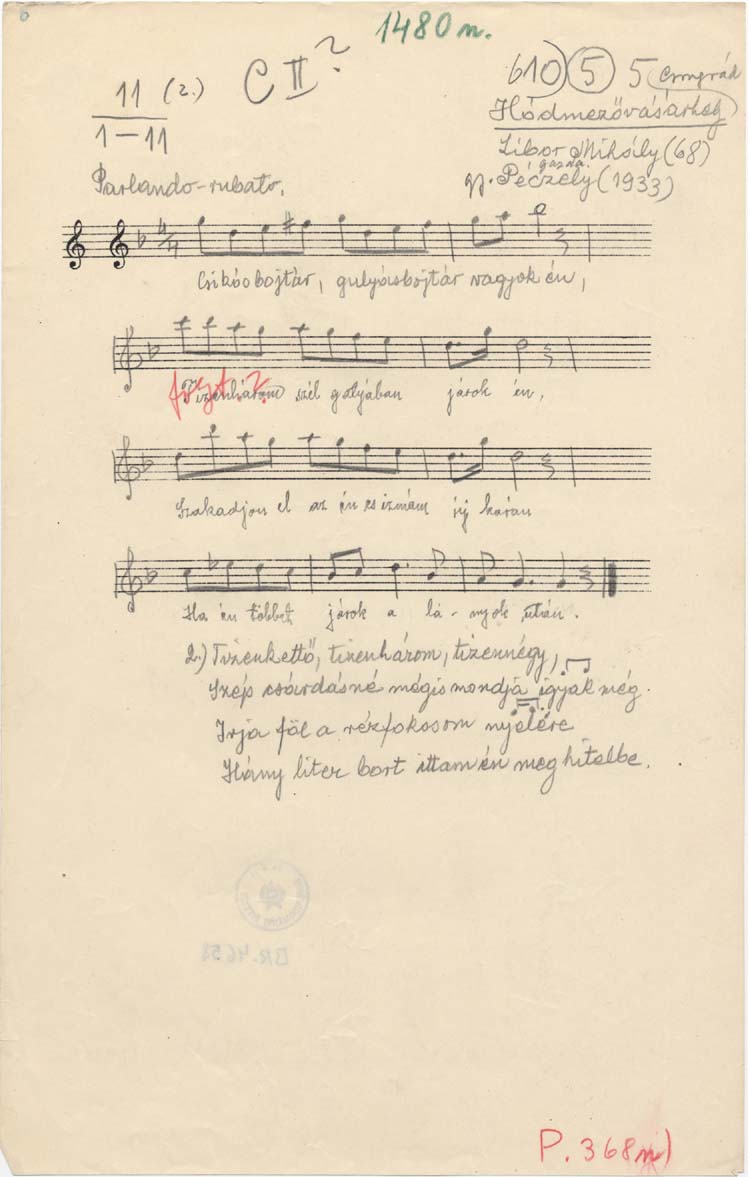 6
1480 n.
11 (2.)
1-11
C II ?
610) (5) 5 Csongrád
Hódmezővásárhely
Libor Mihály (68)
gazda.
Gy. Péczely (1933)
Parlando-rubato.
Csikósbojtár, gulyásbojtár vagyok én,
Tizenhárom szél gatyában járok én,
Szakadjon el az én csizmám új korán
Ha én többet járok a lá-nyok után.
2.) Tizenkettő, tizenhárom, tizennégy,
Szép csárdásné mégis mondja igyak még.
Irja föl a rézfokosom nyelére
Hány liter bort ittam én meg hitelbe.
BR.
P. 368